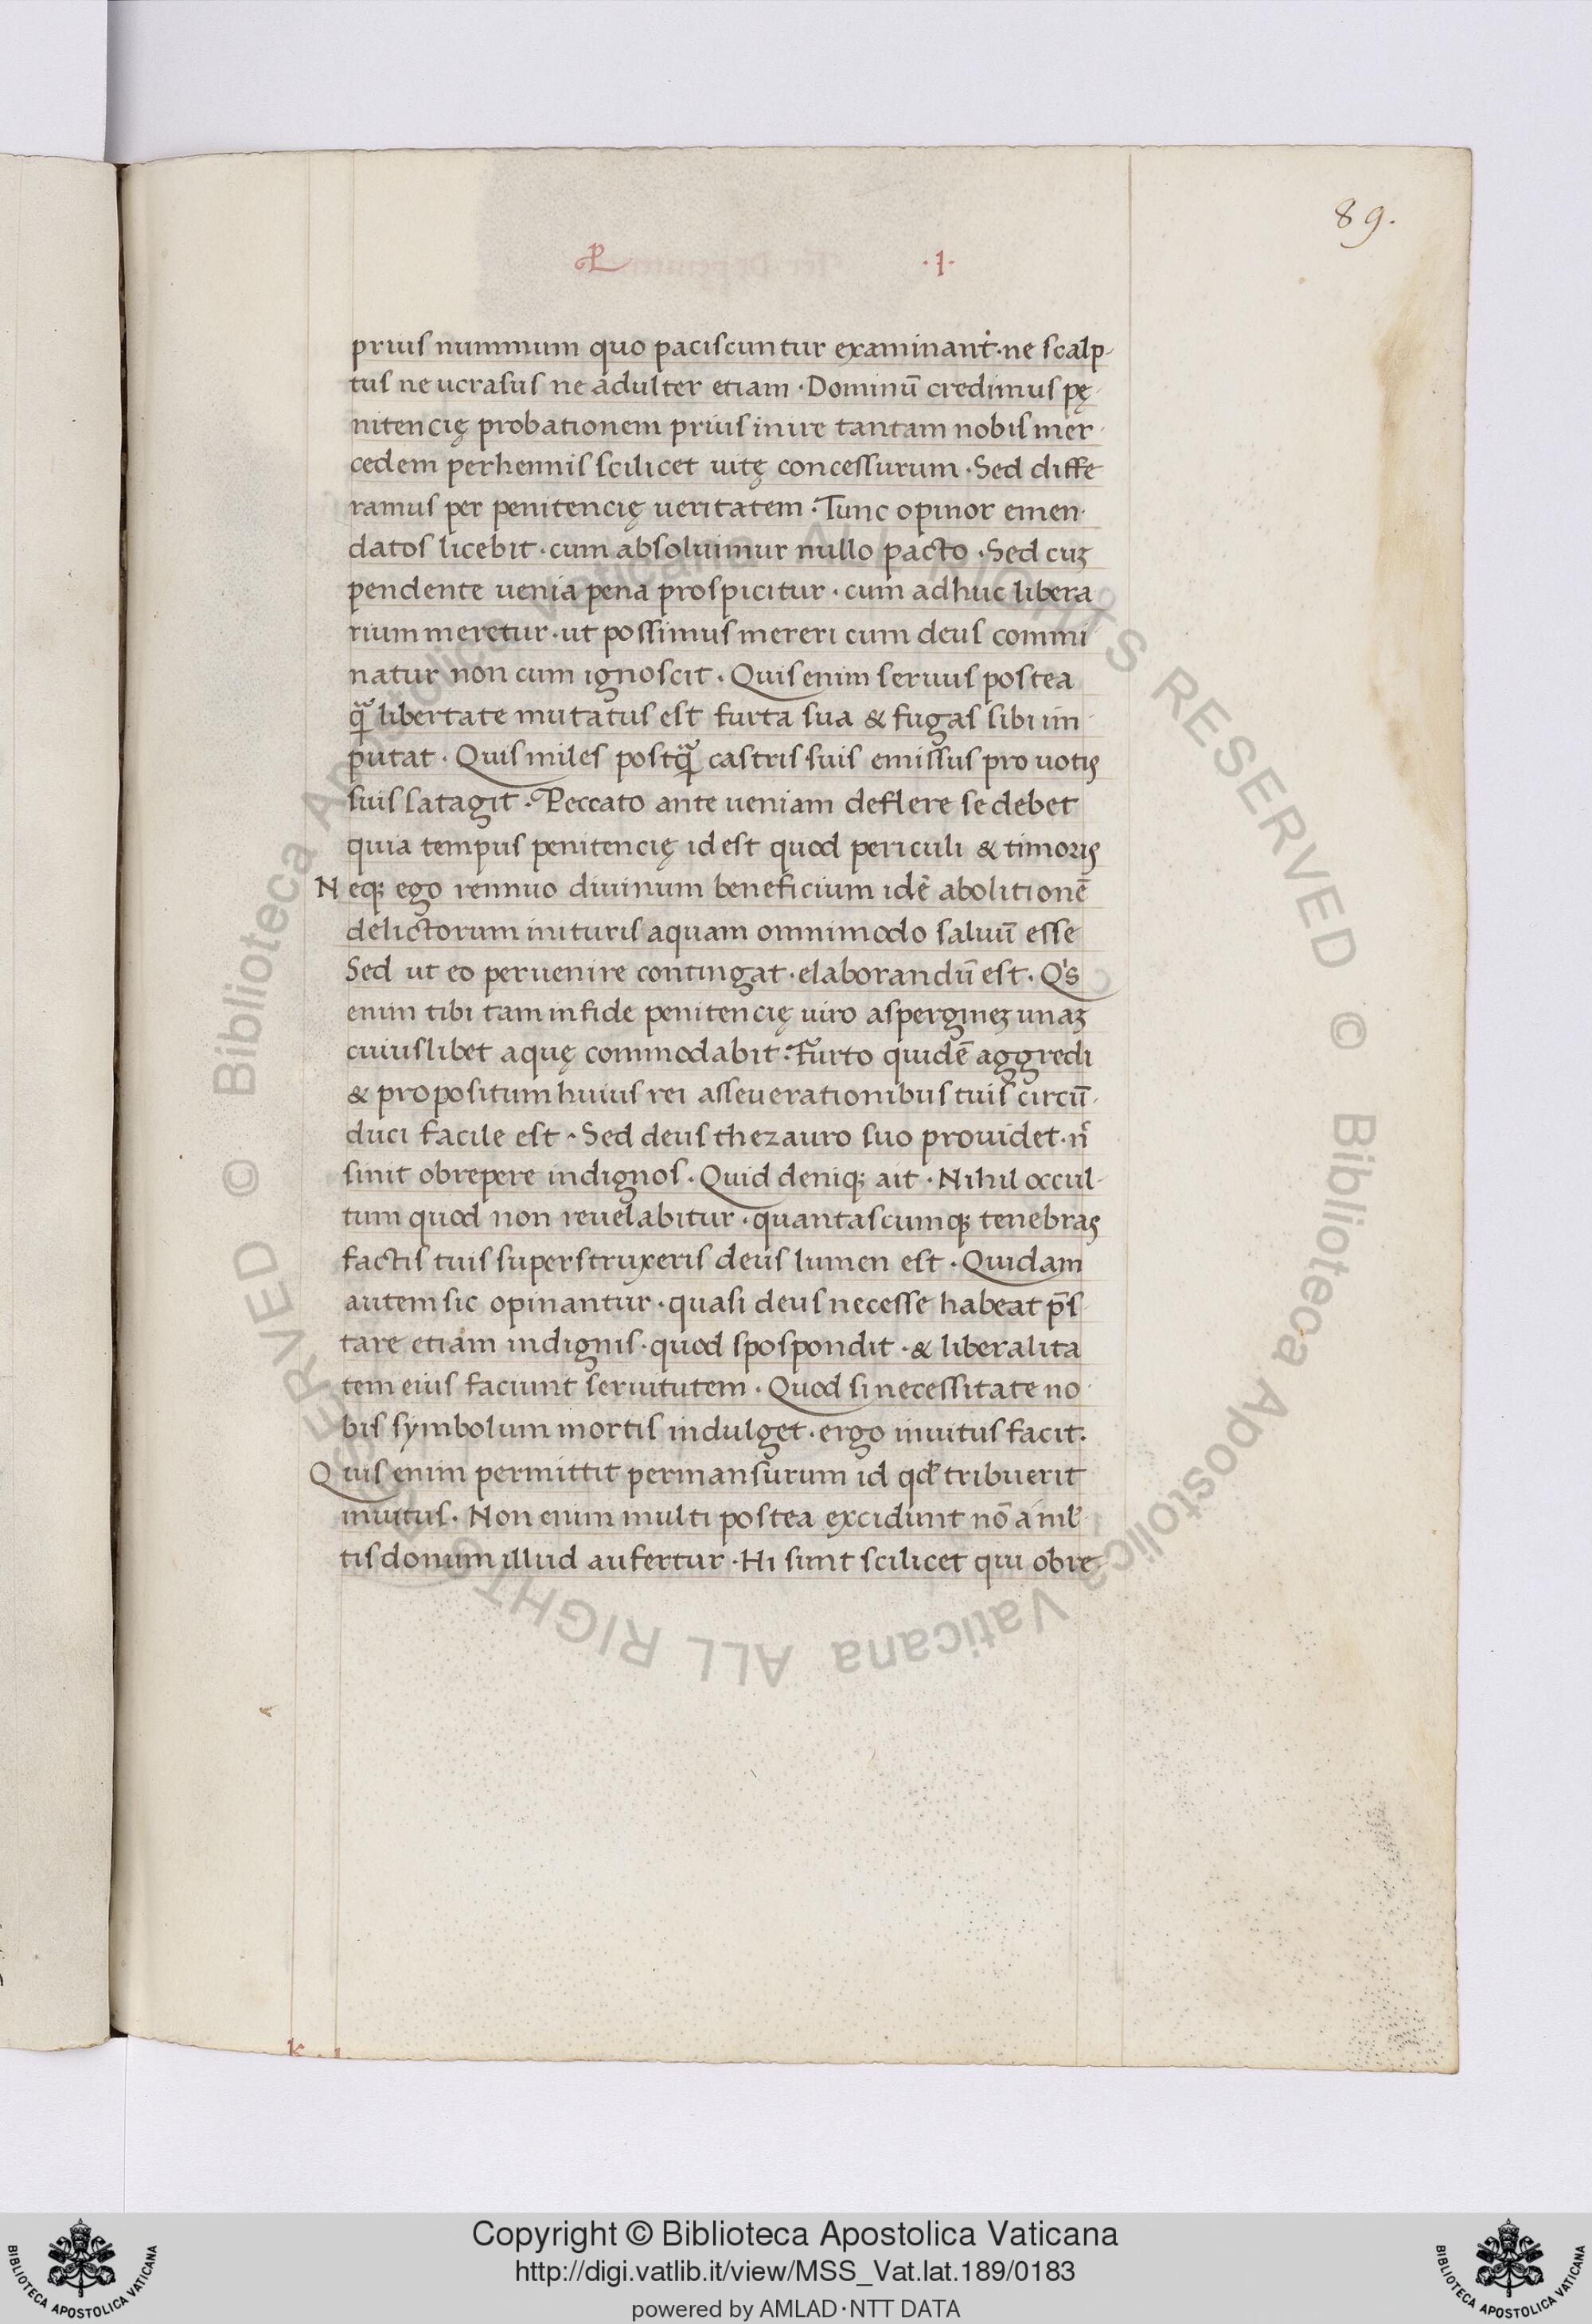 89.
.1.
prius nummum quo paciscuntur examinant·ne scalp-
tus ne ucrasus ne adulter etiam · Dominū credimus pę-
nitencię probationem prius inire tantam nobis mer-
cedem perhennis scilicet uitę concessurum · Sed diffe
ramus per penitencię ueritatem · Tunc opinor emen-
datos licebit · cum absoluimur nullo pacto · Sed cuꝫ
pendente uenia pena prospicitur · cum adhuc libera
rium meretur · ut possimus mereri cum deus commi
natur non cum ignoscit · Quis enim seruus postea
ꝙ̃ libertate mutatus est furta sua & fugas sibi im-
putat · Quis miles postꝙ̃ castris suis emissus pro uotis
suis satagit · Peccato ante ueniam deflere se debet
quia tempus penitencię id est quod periculi & timoris
Neqꝫ ego rennuo diuinum beneficium idē abolitionē
delictorum inituris aquam omnimodo saluū esse
Sed ut eo peruenire contingat · elaborandū est · Qͥs
enim tibi tam infide penitencię uiro aspergineꝫ unaꝫ
cuiuslibet aquę commodabit · Furto quidē aggredi
& propositum huius rei asseuerationibus tuis circū-
duci facile est · Sed deus thezauro suo prouidet · n̄
sinit obrepere indignos · Quid deniqꝫ ait · Nihil occul-
tum quod non reuelabitur · quantascumqꝫ tenebras
factis tuis superstruxeris deus lumen est · Quidam
autem sic opinantur · quasi deus necesse habeat p̄s-
tare etiam indignis · quod spospondit · & liberalita
tem eius faciunt seruitutem · Quod si necessitate no-
bis symbolum mortis indulget · ergo inuitus facit ·
Quis enim permittit permansurum id qđ tribuerit
inuitus · Non enim multi postea excidunt nō a ml̄-
tis donum illud aufertur · Hi sunt scilicet qui obre-
k
Copyright © Biblioteca Apostolica Vaticana
http://digi.vatlib.it/view/MSS_Vat.lat.189/0183
powered by AMLAD·NTT DATA
BIBLIOTECA APOSTOLICA VATICANA
BIBLIOTECA APOSTOLICA VATICANA
© Biblioteca Apostolica Vaticana ALL RIGHTS RESERVED © Biblioteca Apostolica Vaticana ALL RIGHTS RESERVED